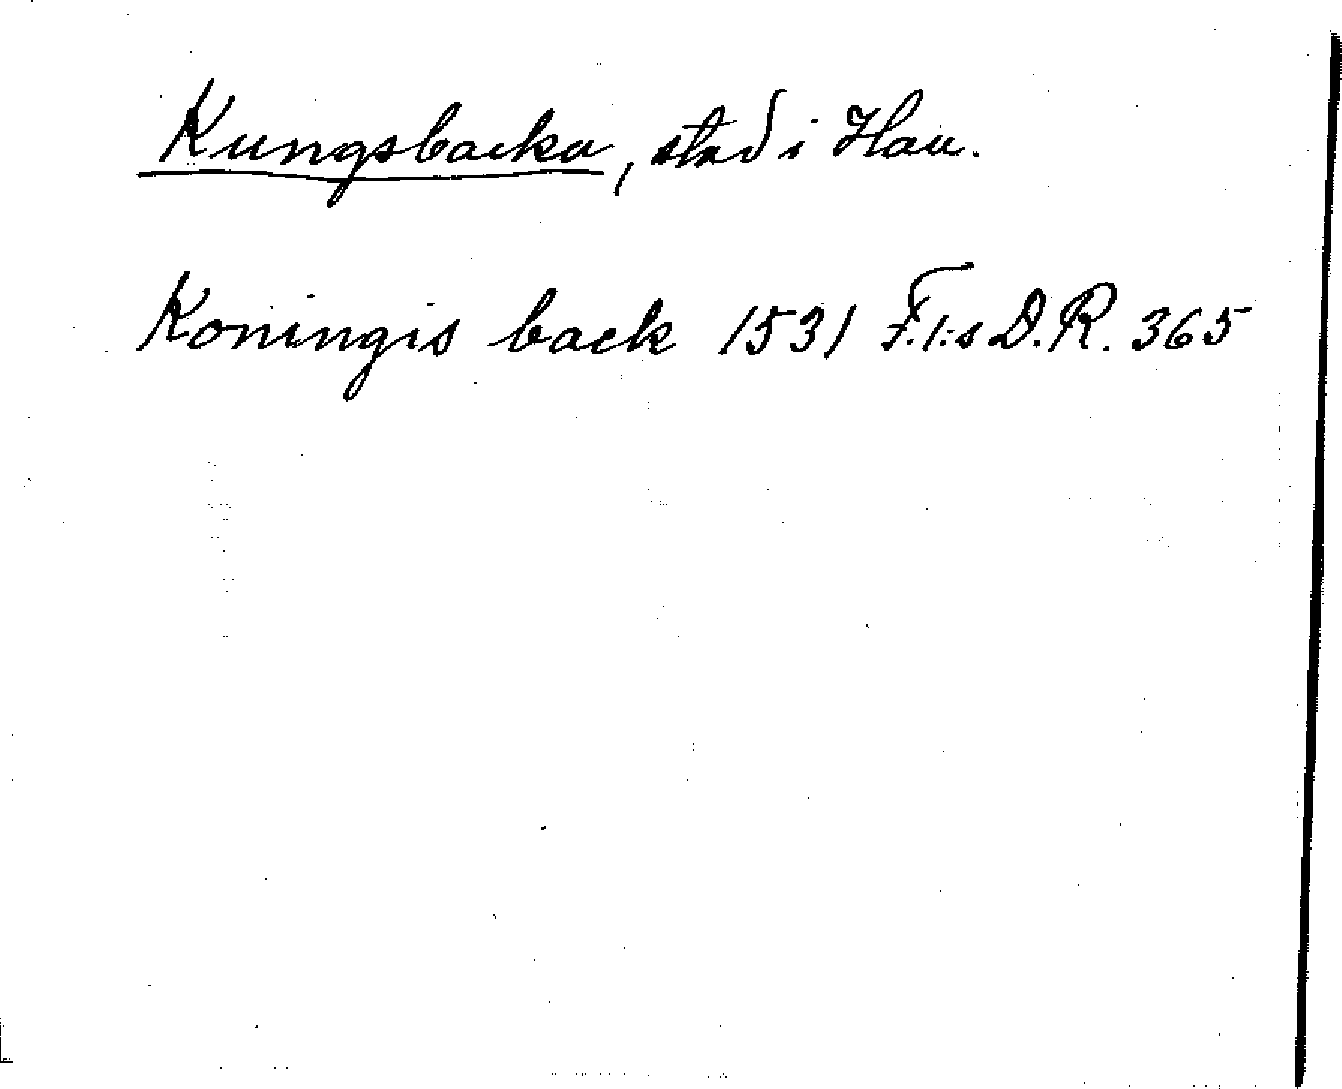 Kungsbacka, stad i Hall.
Koningis back 1531 F.I:s D.R. 365